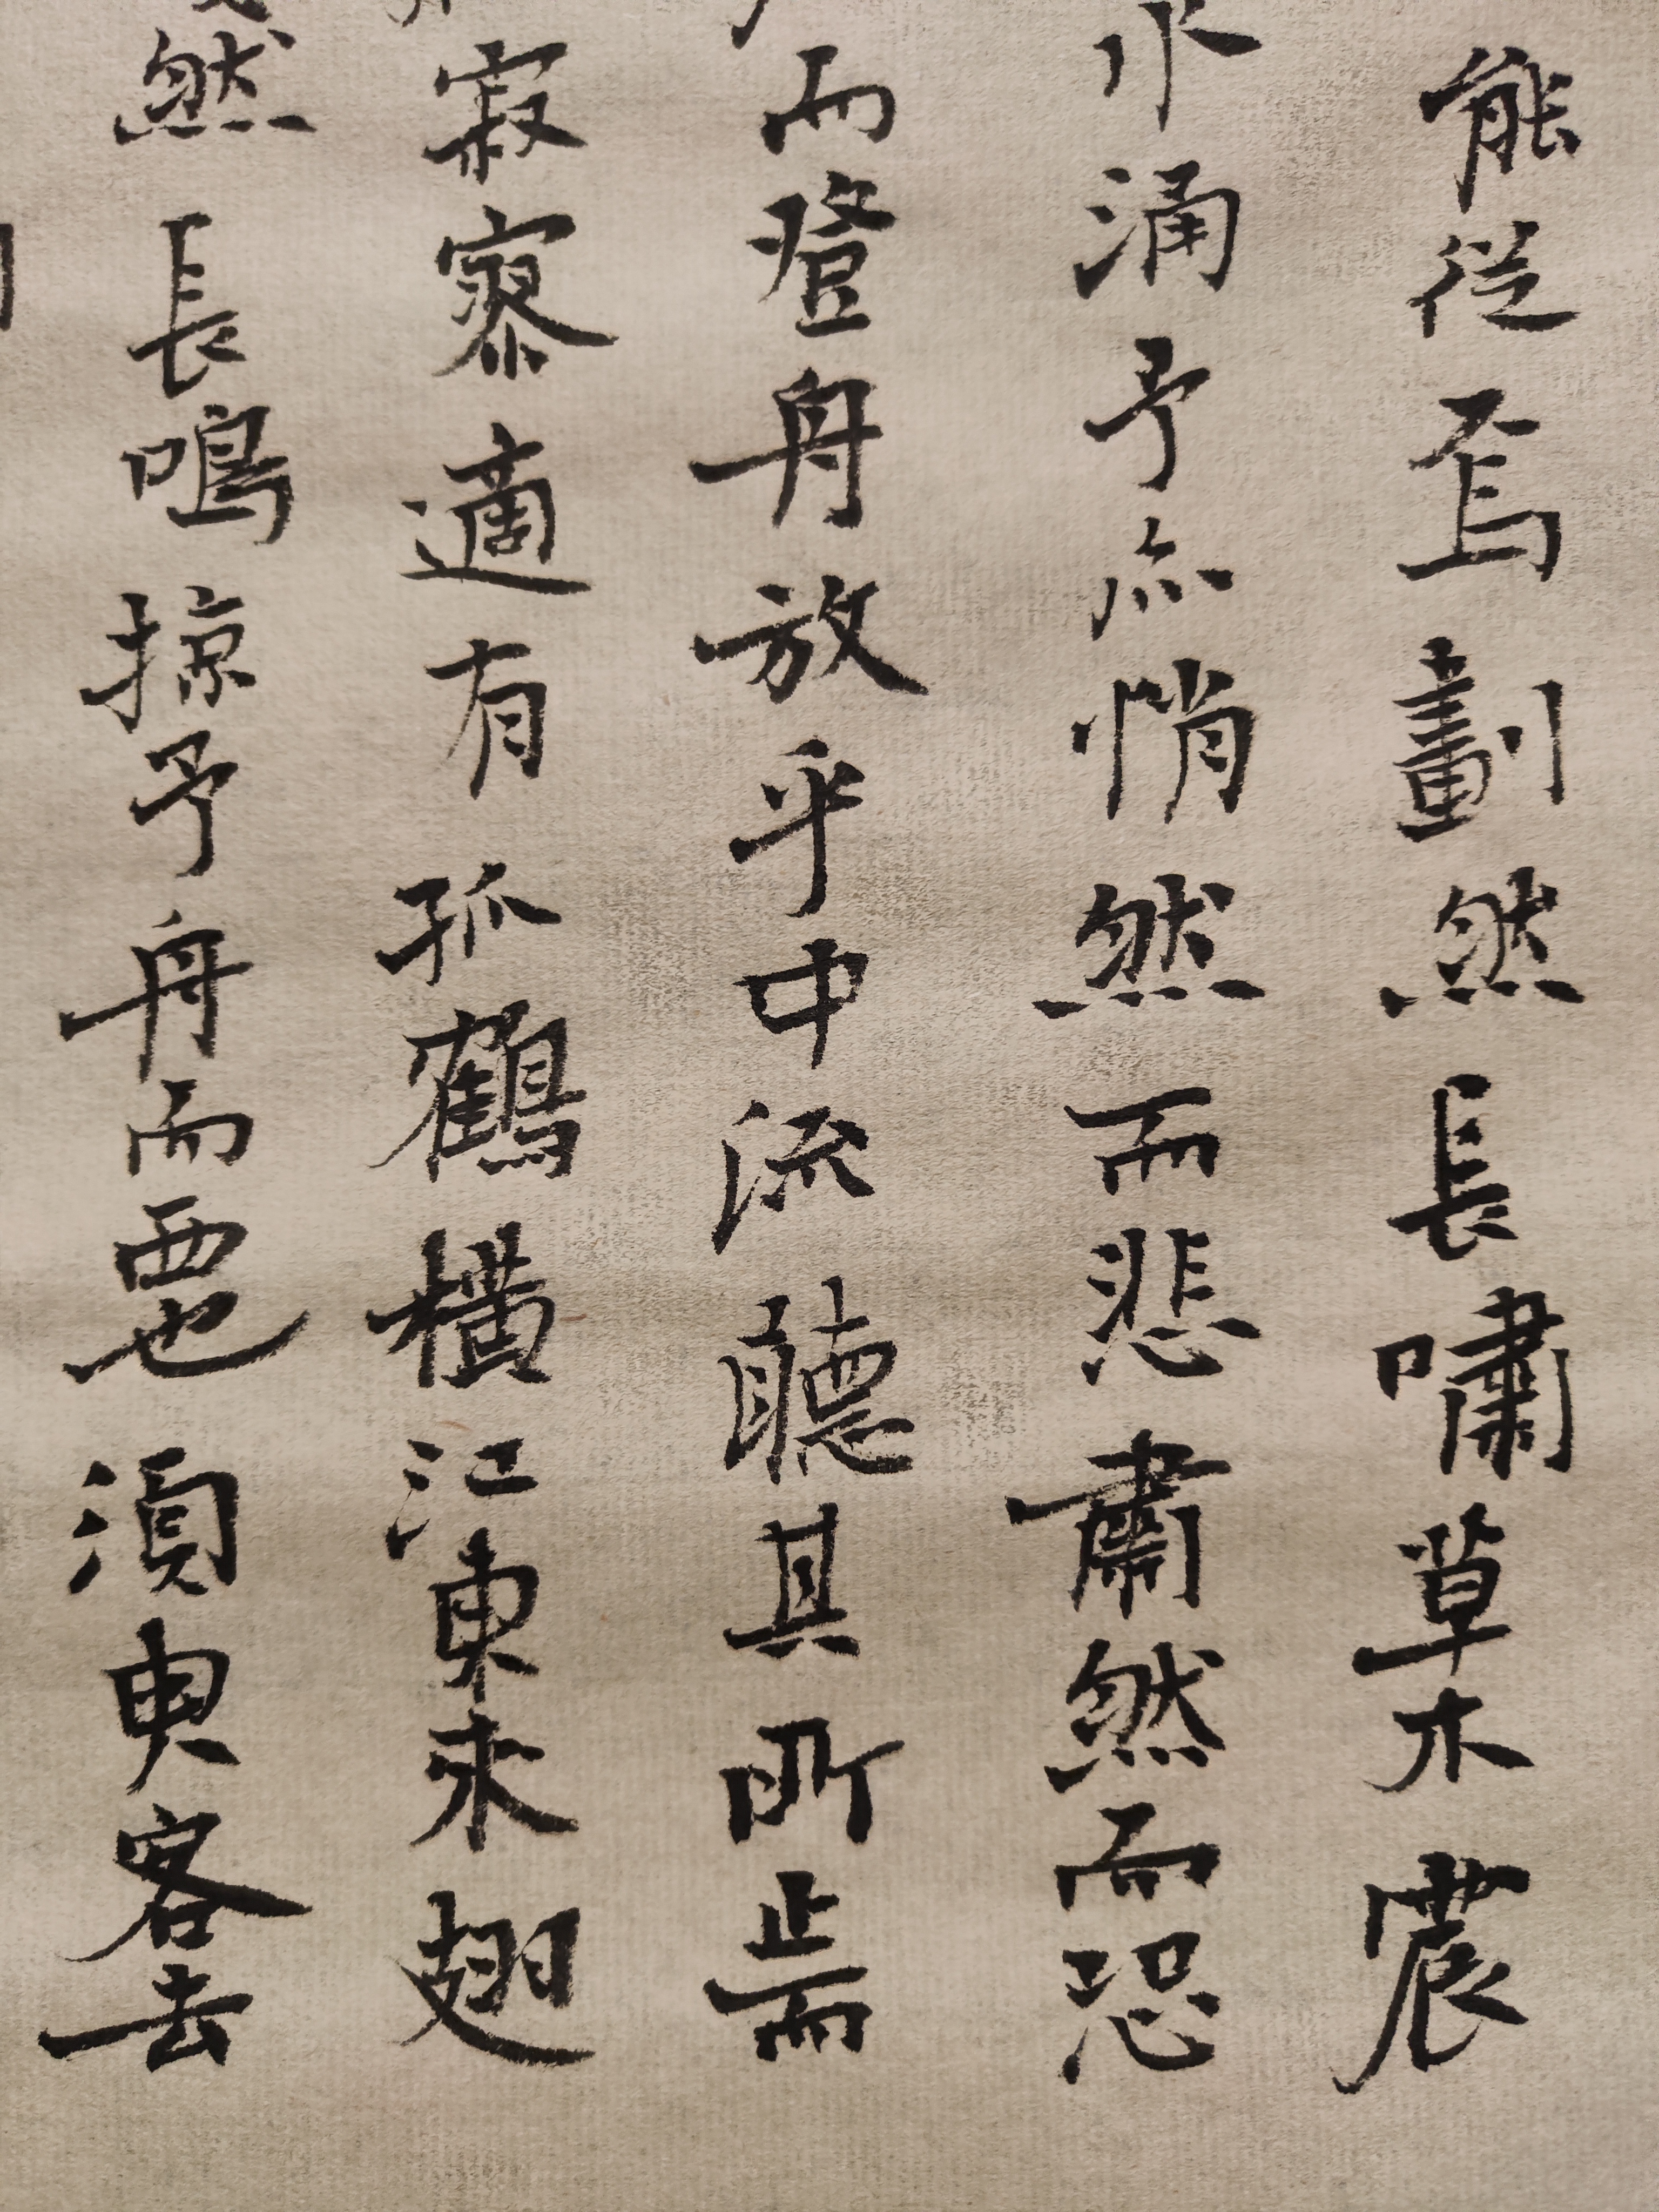 能從焉劃然長嘯草木震
水涌予亦悄然而悲肅然而恐
而登舟放乎中流聽其所止而
寂寥適有孤鶴橫江東來翅
然長鳴掠予舟而西也須臾客去